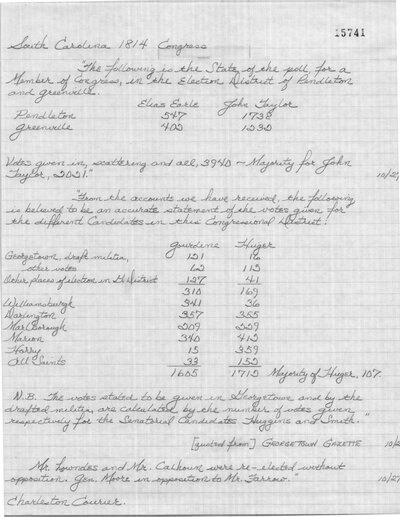 15741
South Carolina 1814 Congress
"The following is the State of the poll, for a
Member of Congress, in the Election District of Pendleton
and Greenville.
Elias Earle John Taylor
Pendleton 547 1738
Greenville 402 1232
Votes given in, scattering and all, 3940 - Majority for John
Taylor, 2021." 10/27
"From the accounts we have received, the following
is believed to be an accurate statement of the votes given for
the different Candidates in this Congressional District:
Gourdine Huger
Georgetown, draft militia, 121 16
other votes 62 112
Other places of election in Gt District 127 41
310 169
Williamsburgh 341 36
Darlington 357 355
Marlborough 209 229
Marion 340 412
Horry 15 359
All Saints 33 152
1605 1712 Majority of Huger, 107.
N.B. The votes stated to be given in Georgetown and by the
drafted militia, are calculated by the number of votes given
respectively for the Senatorial Candidates Huggins and Smith."
[quoted from] GEORGETOWN GAZETTE 10/2
Mr. Lowndes and Mr. Calhoun were re-elected without
opposition. Gen. Moore in opposition to Mr. Farrow." 10/27
Charleston Courier.